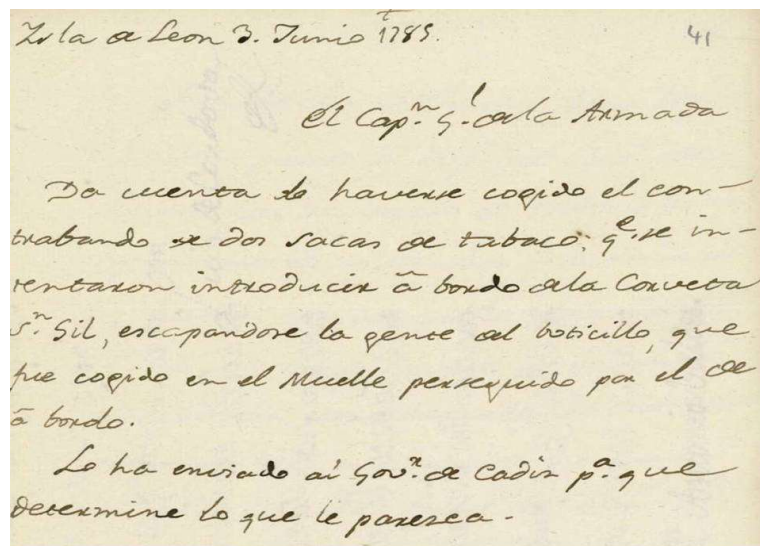 Ysla de Leon 3. Junio 1785. 41
El Cap.n G.l de la Armada
Da cuenta de haverse cogido el con-
trabando de dos sacas de tabaco, q.e se in-
tentaron introducir â bordo de la Corveta
S.n Gil, escapandose la gente del boticillo, que
fue cogido en el Muelle perseguido por el de
â bordo.
Lo ha enviado al Gov.r de Cadiz p.a que
determine lo que le paresca.